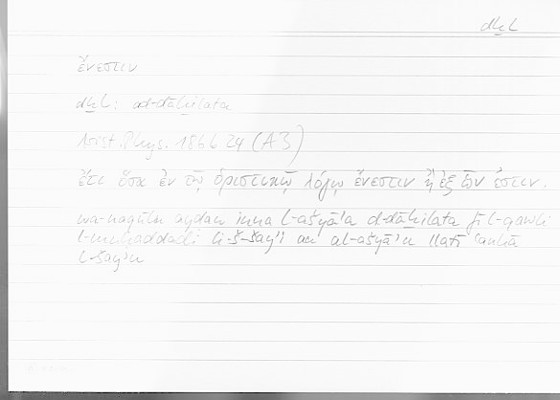 dḫl
ἔνεστιν
dḫl: ad-dāḫilata
Arist. Phys. 186b 24 (A3)
ἔτι ὅσα ἐν τῷ ὁριστικῷ λόγῳ ἔνεστιν ἢ ἐξ ὧν ἐστιν.
wa-naqūlu ayḍan inna l-ašyā'a d-dāḫilata fī l-qawli
l-muḥaddadi li-š-šay'i au al-ašyā'u llatī 'anhā
l-šay'u